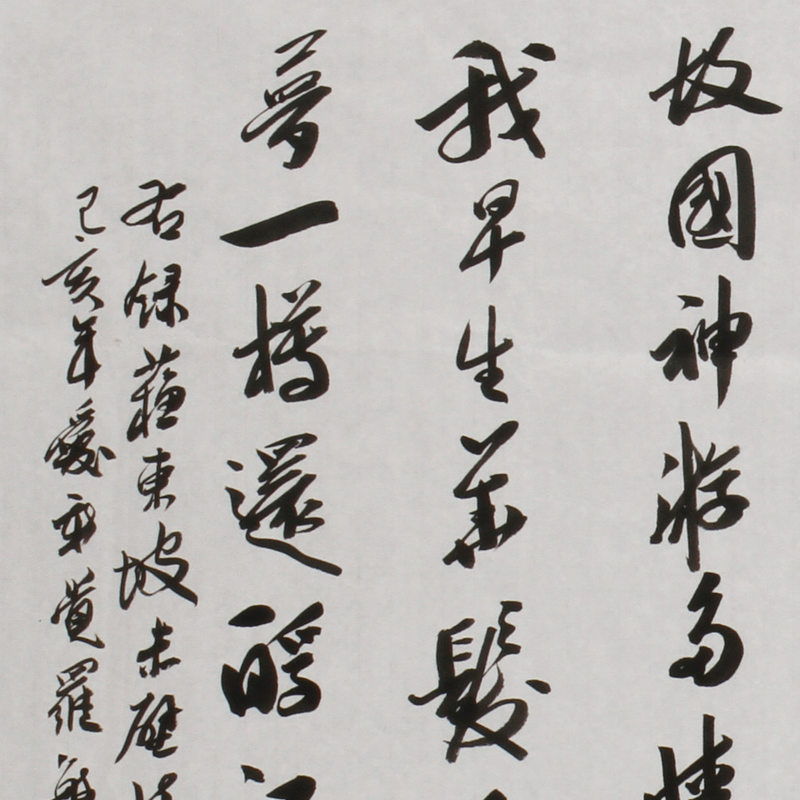 故國神游多情
我早生華髮
夢一樽還酹
右録蘇東坡赤壁
己亥年愛新覺羅